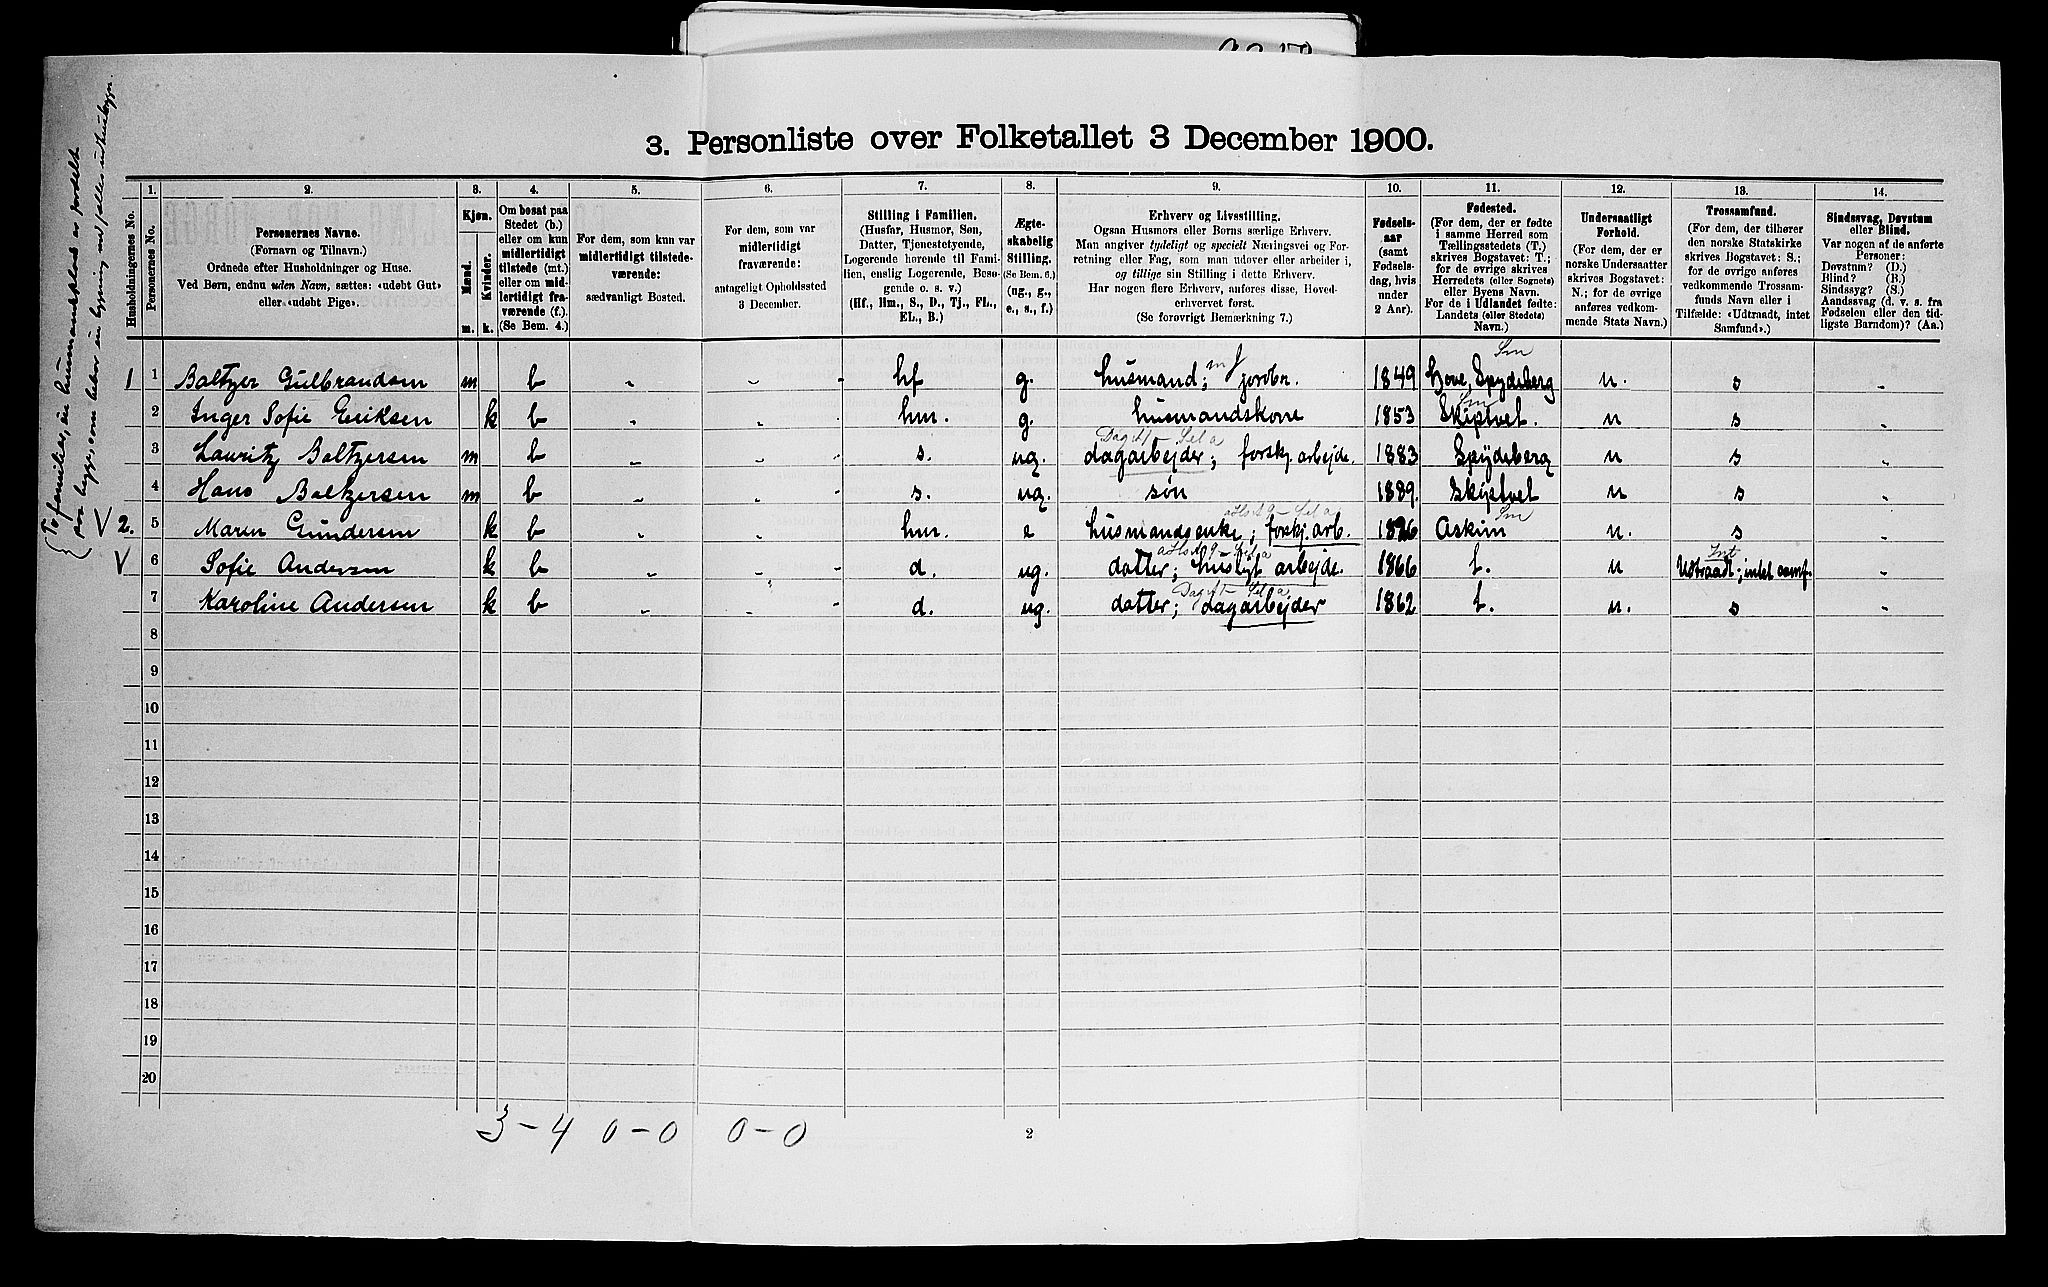 3. Personliste over Folketallet 3 December 1900.
Husholdningernes No.
1.
Personernes No.
2.
Personernes Navne.
(Fornavn og Tilnavn.)
Ordnede efter Husholdninger og Huse.
Ved Børn, endnu uden Navn, sættes: «udøbt Gut»
eller «udøbt Pige».
3.
Kjøn.
Mænd.
Kvinder.
m.
k.
4.
Om bosat paa
Stedet (b.)
eller om kun
midlertidigt
tilstede (mt.)
eller om mid-
lertidigt fra-
værende (f.).
(Se Bem. 4.)
5.
For dem, som kun var
midlertidigt tilstede-
værende:
sædvanligt Bosted.
6.
For dem, som var
midlertidigt
fraværende:
antageligt Opholdssted
3 December.
7.
Stilling i Familien.
(Husfar, Husmor, Søn,
Datter, Tjenestetyende,
Logerende hørende til Fami-
lien, enslig Logerende, Besø-
gende o. s. v.)
(Hf., Hm., S., D., Tj., FL.,
EL., B.)
8.
Ægte-
skabelig
Stilling.
(Se Bem. 6.)
(ug., g.,
e., s., f.)
9.
Erhverv og Livsstilling.
Ogsaa Husmors eller Børns særlige Erhverv.
Man angiver tydeligt og specielt Næringsvei og For-
retning eller Fag, som man udøver eller arbeider i,
og tillige sin Stilling i dette Erhverv.
Har nogen flere Erhverv, anføres disse, Hoved-
erhvervet først.
(Se forøvrigt Bemærkning 7.)
10.
Fødsels-
aar
(samt
Fødsels-
dag, hvis
under
2 Aar).
11.
Fødested.
(For dem, der er fødte
i samme Herred som
Tællingsstedets (T.)
skrives Bogstavet: T.;
for de øvrige skrives
Herredets (eller Sognets)
eller Byens Navn.
For de i Udlandet fødte:
Landets (eller Stedets)
Navn.)
12.
Undersaatligt
Forhold.
(For dem, der er
norske Undersaatter
skrives Bogstavet:
N.; for de øvrige
anføres vedkom-
mende Stats Navn.)
13.
Trossamfund.
(For dem, der tilhører
den norske Statskirke
skrives Bogstavet: S.;
for de øvrige anføres
vedkommende Trossam-
funds Navn eller i
Tilfælde: «Udtraadt, intet
Samfund».)
14.
Sindssvag, Døvstum
eller Blind.
Var nogen af de anførte
Personer:
Døvstum? (D.)
Blind? (B.)
Sindssyg? (S.)
Aandssvag (d. v. s. fra
Fødselen eller den tid-
ligste Barndom)? (Aa.)
1 1 Baltzer Gulbrandsen m b hf g. husmand; m jordbr. 1849 Hove, Spydeberg Sm n. s
2 Inger Sofie Eriksen k b hm. g. husmandskone 1853 Skiptvet. Sm n s
3 Lauritz Baltzersen m b s. ug. dagarbejder; forskj. arbejde. 1883 Spydeberg n s
4 Hans Baltzersen m b s. ug. søn 1889. Skiptvet n s
2. 5 Maren Gundersen k b hm. e husmandsenke; forskj. arb. 1826 Askim Sm n. s
6 Sofie Andersen k b d. ug. datter; husligt arbejde. 1866 t. n Udtraadt; intet samf.
7 Karoline Andersen k b d. ug. datter; dagarbejder 1862 t. n. s
8
9
10
11
12
13
14
15
16
17
18
19
20
3 – 4 0 – 0 0 – 0
2